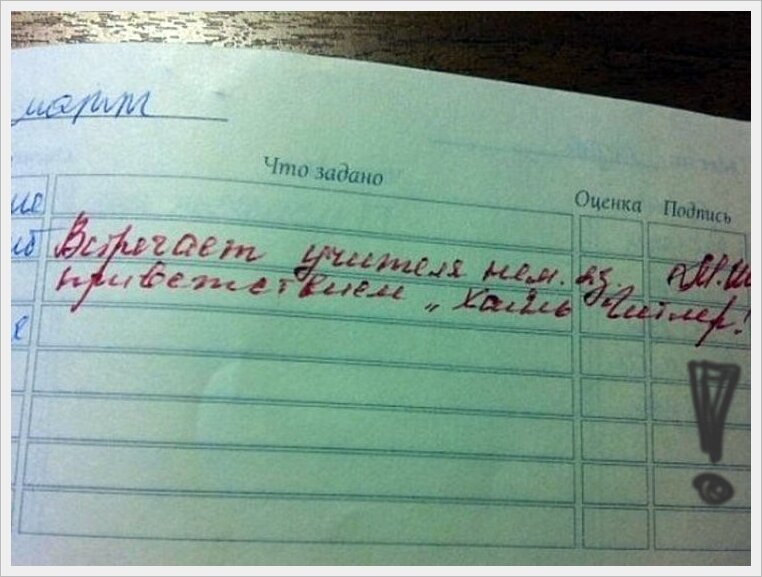 март
Что задано
Оценка Подпись
ие
Встречает учителя нем. яз.
приветствием „Хайль Гитлер!